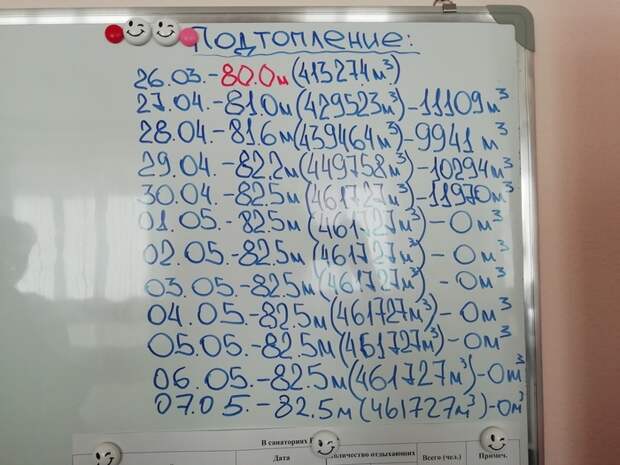 Подтопление:
26.03.-80.0м(413274м³)
27.04.-81.0м(429523м³)-11109м³
28.04.-81.6м(439464м³)-9941 м³
29.04.-82.2м(449758м³)-10294м³
30.04.-82.5м(461727м³)-11970м³
01.05.-82.5м(461727м³)-0м³
02.05.-82.5м(461727м³)-0м³
03.05.-82.5м(461727м³)-0м³
04.05.-82.5м(461727м³)-0м³
05.05.-82.5м(461727м³)-0м³
06.05.-82.5м(461727м³)-0м³
07.05.-82.5м(461727м³)-0м³
В санаториях
Дата
количество отдыхающих
Всего (чел.)
Примеч.